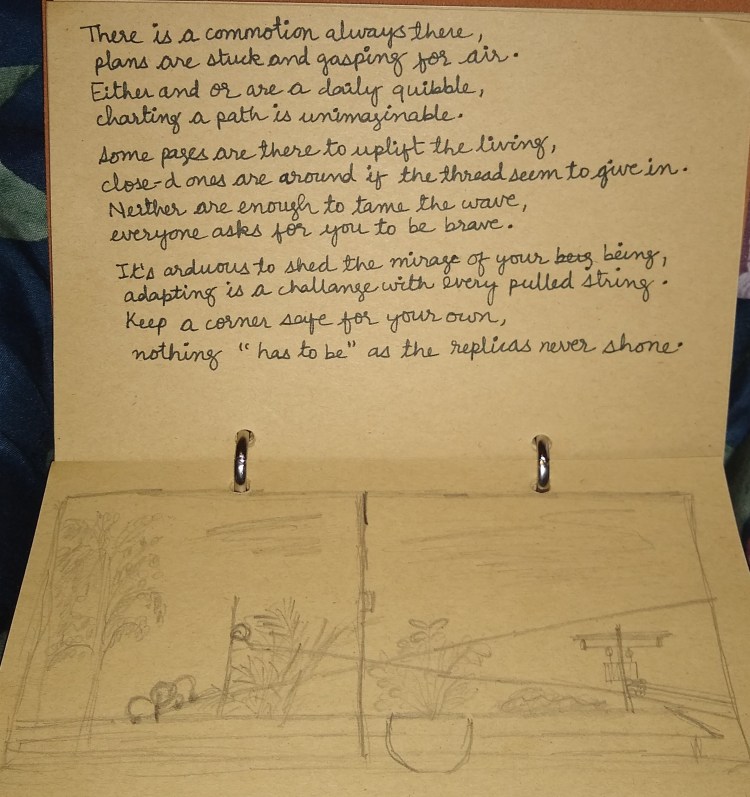 There is a commotion always there,
plans are stuck and gasping for air.
Either and or are a daily quibble,
charting a path is unimaginable.
Some pages are there to uplift the living,
close-d ones are around if the thread seem to give in.
Neither are enough to tame the wave,
everyone asks for you to be brave.
It's arduous to shed the mirage of your being,
adapting is a challange with every pulled string.
Keep a corner safe for your own,
nothing "has to be" as the replicas never shone.